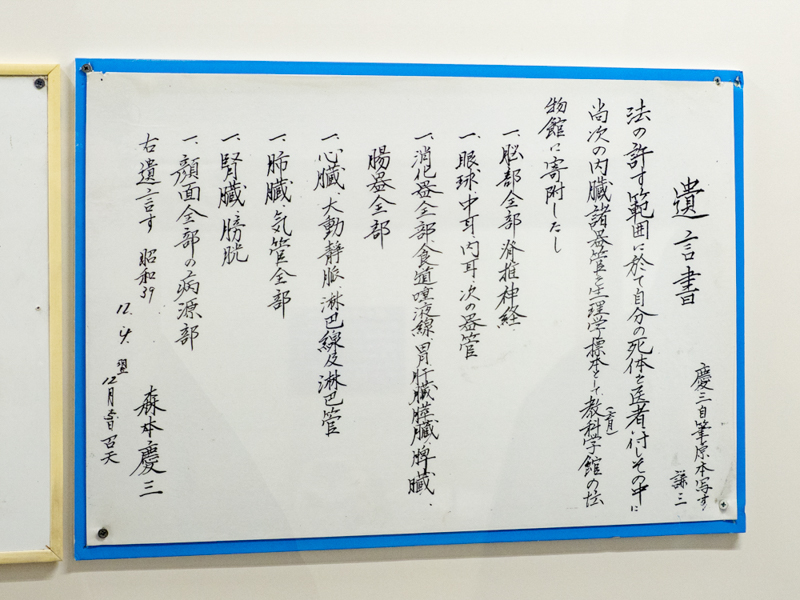 遺言書
慶三自筆原本写す
謙三
法の許す範囲に於て自分の死体を医者に付しその中に
尚次の内臓諸器管を生理学標本として教科学館の
物館に寄附したし
一、脳部全部、脊椎神経
一、眼球、中耳、内耳、次の器管
一、消化器全部、食道、唾液線、胃、肝臓、膵臓、脾臓、
腸器全部
一、心臓、大動静脈、淋巴線及淋巴管
一、肺臓、気管全部
一、腎臓、膀胱
一、顔面全部の病源部
右遺言す 昭和39
森本慶三